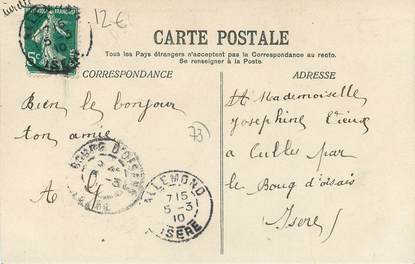 12€
CARTE POSTALE
Tous les Pays étrangers n'acceptent pas la Correspondance au recto.
Se renseigner à la Poste.
CORRESPONDANCE
ADRESSE
Bien le bonjour
ton amie
A G
73
Mademoiselle
Josephine Vieux
a Culles par
le Boug d'oisais
Isere
5c
10
ISERE
BOURG D'OISANS
ALLEMOND
7 15
5 -3
10
ISERE